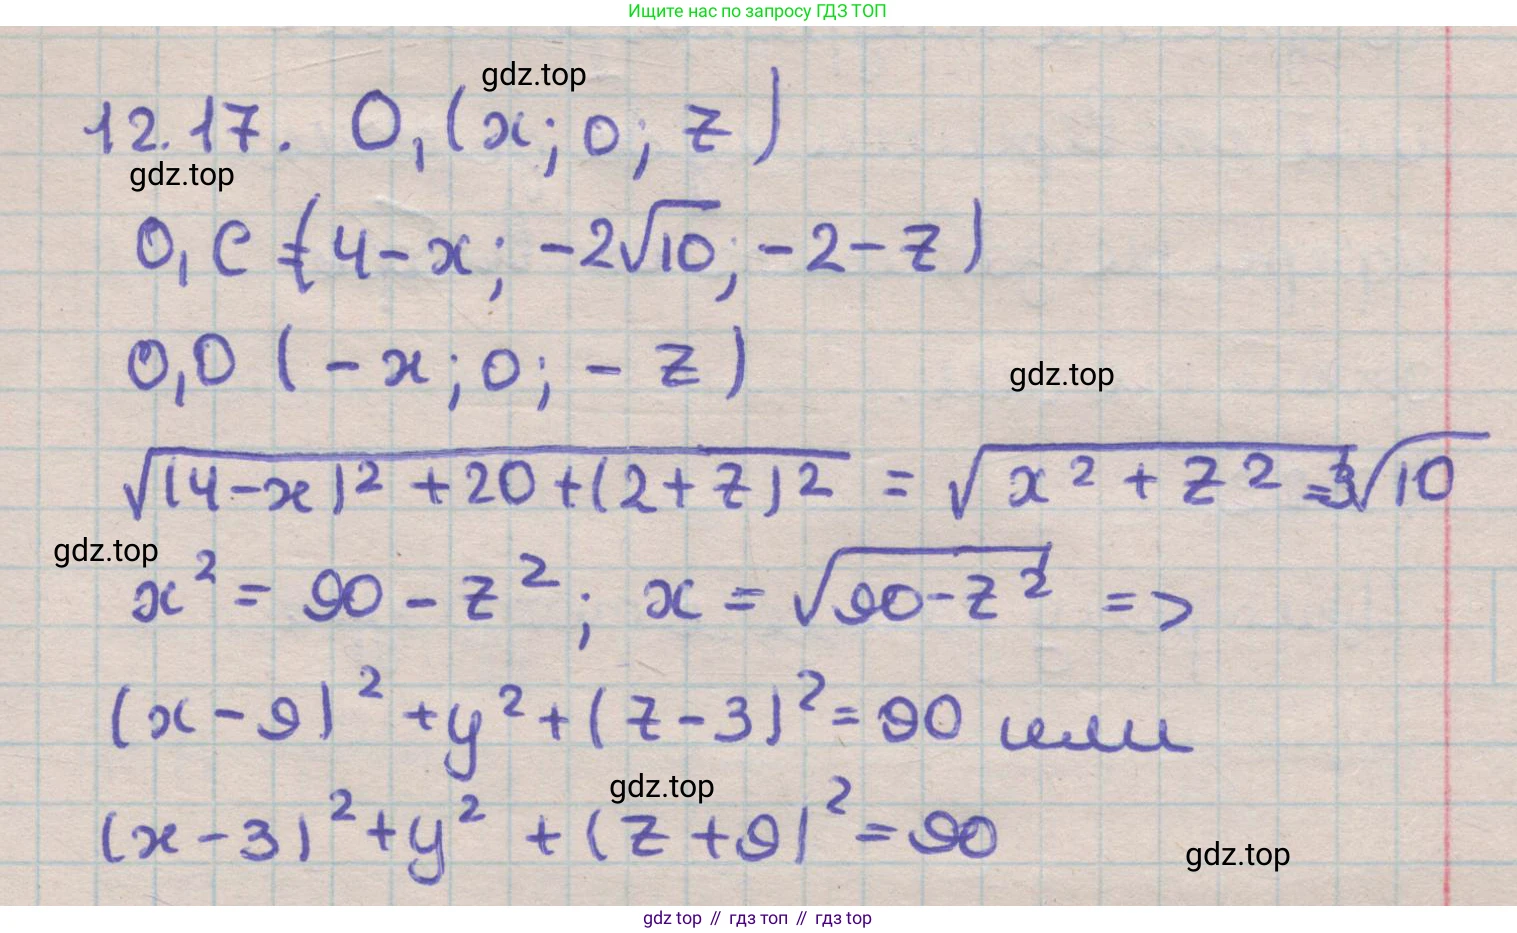 Ищите нас по запросу ГДЗ ТОП
gdz.top
12.17. O₁(x; 0; z)
gdz.top
O₁C = (4-x; -2√10; -2-z)
O₁O (-x; 0; -z)
gdz.top
√((4-x)² + 20 + (2+z)²) = √(x² + z²) = 3√10
gdz.top
x² = 90 - z²; x = √(90-z²) =>
(x-9)² + y² + (z-3)² = 90 или
gdz.top
(x-3)² + y² + (z+9)² = 90
gdz.top
gdz top // гдз топ // гдз top